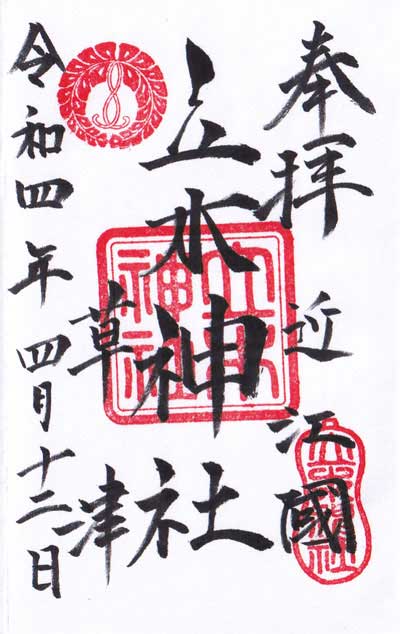 奉拝 近江國
立木神社
草津
令和四年四月十三日
立木神社